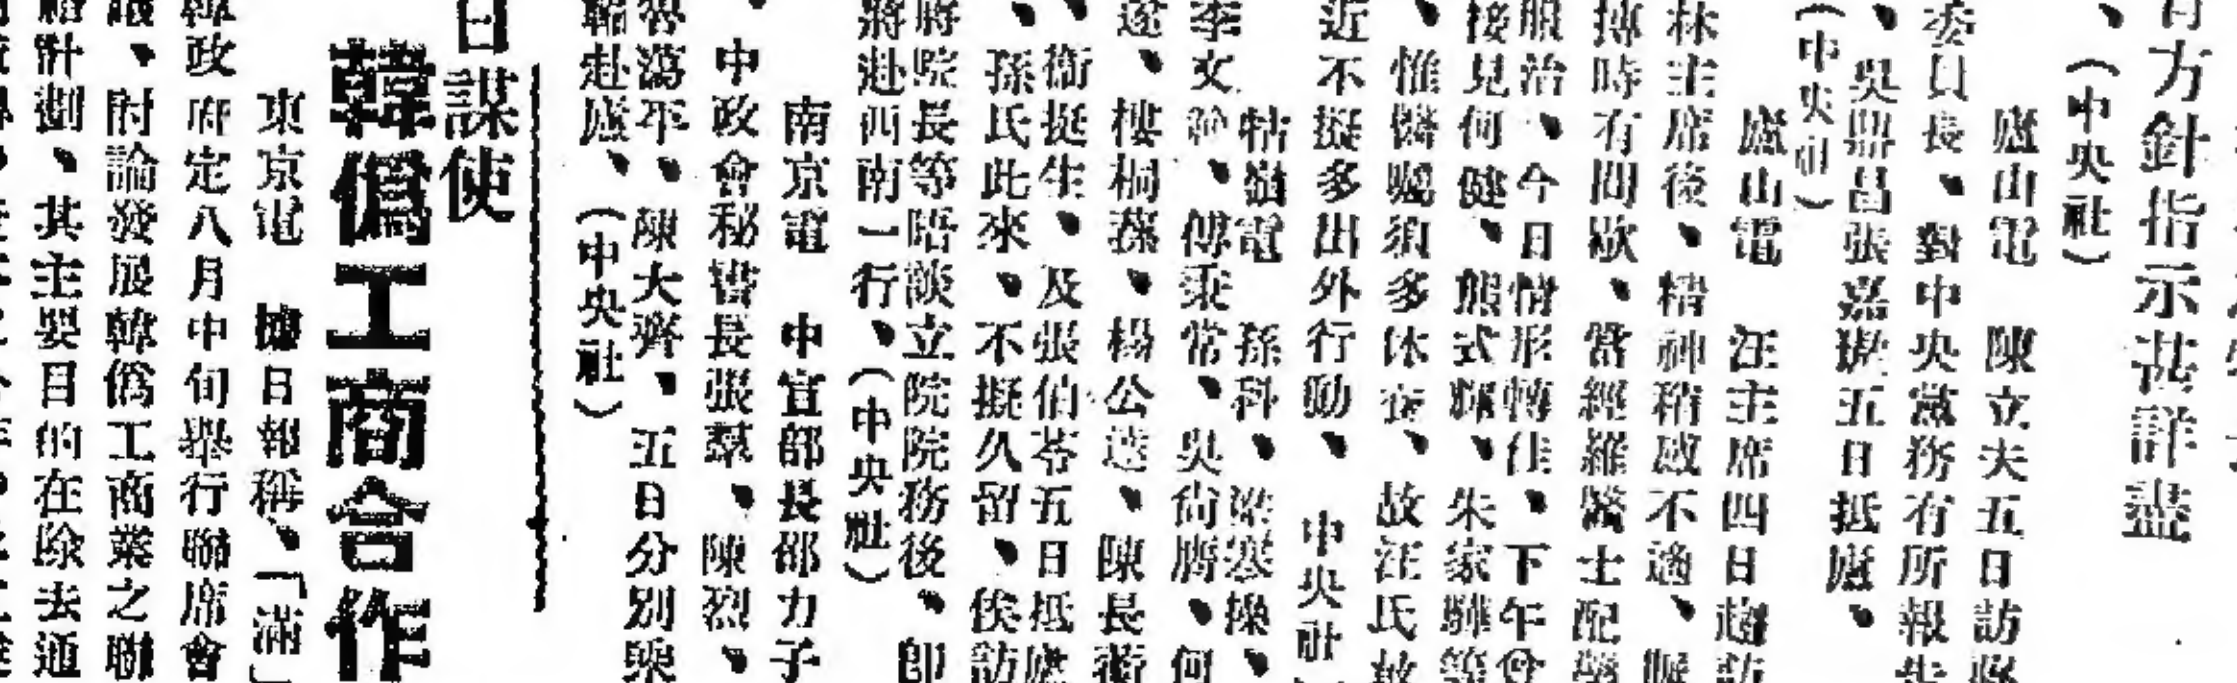 方針指示甚詳盡
、（中央社）
廬山電　陳立夫五日訪
委員長、對中央黨務有所報告
、吳鼎昌張嘉璈五日抵廬、
（中央社）
廬山電　汪主席四日趨訪
林主席後、精神稍感不適、脈
搏時有間歇、當經羅醫士配藥
服治、今日情形轉佳、下午曾
接見何健、熊式輝、朱家驊等
、惟醫囑須多休養、故汪氏故
近不擬多出外行動、　中央社
牯嶺電　孫科、梁寒操、
李文範、傅秉常、吳尚鷹、何
遂、樓桐蓀、楊公達、陳長蘅
、衞挺生、及張伯苓五日抵廬
、孫氏此來、不擬久留、俟訪
蔣院長等晤談立院院務後、卽
將赴西南一行、（中央社）
南京電　中宣部長邵力子
、中政會秘書長張羣、陳烈、
曾蕩平、陳大齊、五日分別乘
輪赴廬、（中央社）
日謀使
韓僞工商合作
東京電　據日報稱、「滿」
韓政府定八月中旬舉行聯席會
議、討論發展韓僞工商業之聯
絡計劃、其主要目的在除去通